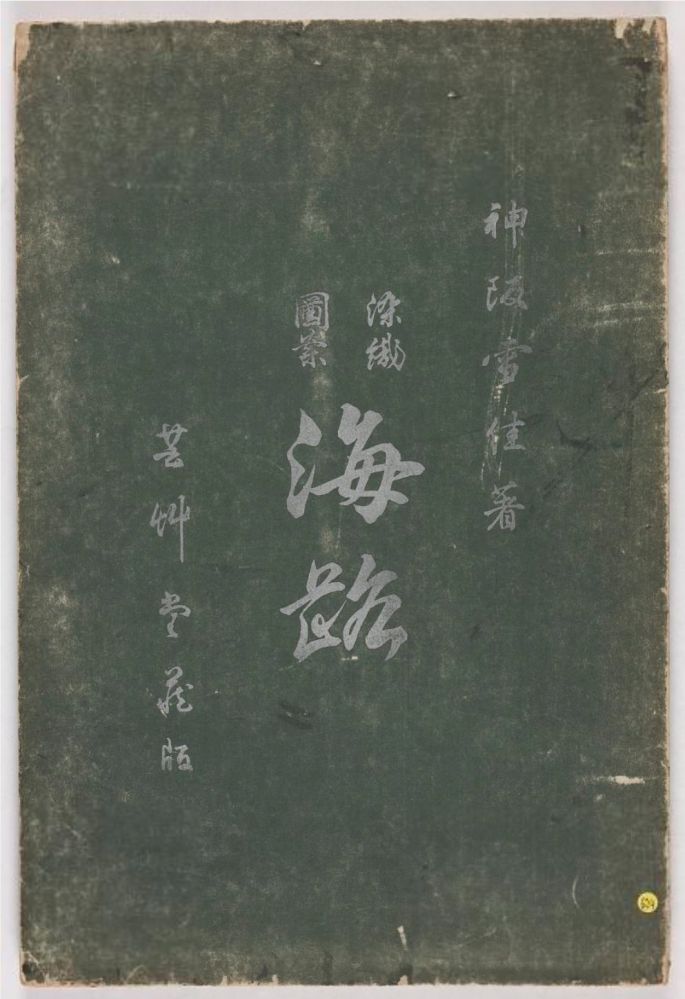 神阪雪佳著
染織
圖案
海路
芸艸堂蔵版